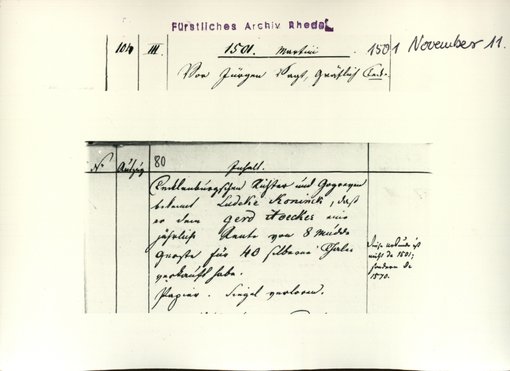 Fürstliches Archiv Rheda
104 III. 1501. Martini. 1501 November 11.
Vor Jürgen Vagt, Gräflich Teck-
N. Auszug 80 Inhalt.
Tecklenburgschen Richter und Gogreven
bekennt Lüdeke Konink, daß
er dem Gerd Haecker eine
jährliche Rente von 8 Müdde
Gerste für 40 silberne Thaler
verkauft habe.
Papier. Siegel verloren.
Diese Urkunde ist
nicht de 1501;
sondern de
1570.